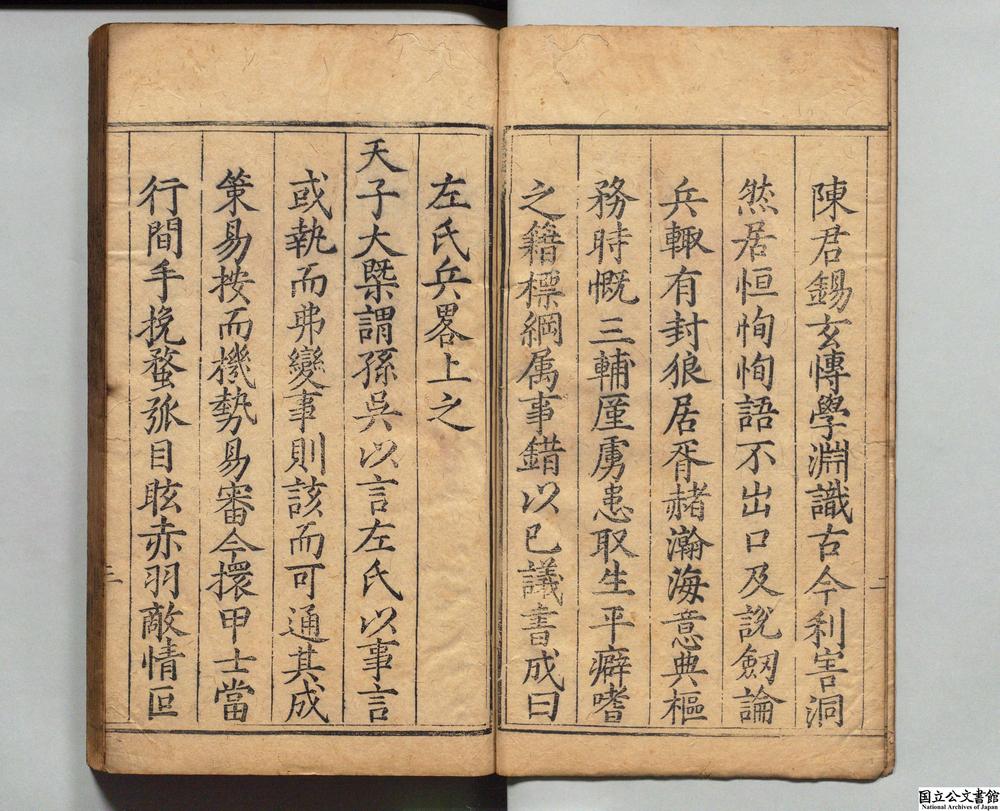 陳君錫玄慱學淵識古今利害洞
然居恒恂恂語不出口及說劒論
兵輙有封狼居胥赭瀚海意典樞
務時慨三輔厪虜患取生平癖嗜
之籍標綱属事錯以已議書成曰
左氏兵畧上之
天子大槩謂孫吳以言左氏以事言
或執而弗變事則該而可通其成
策易按而機勢易審今擐甲士當
行間手挽蝥弧目眩赤羽敵情叵
一
二
国立公文書館
National Archives of Japan